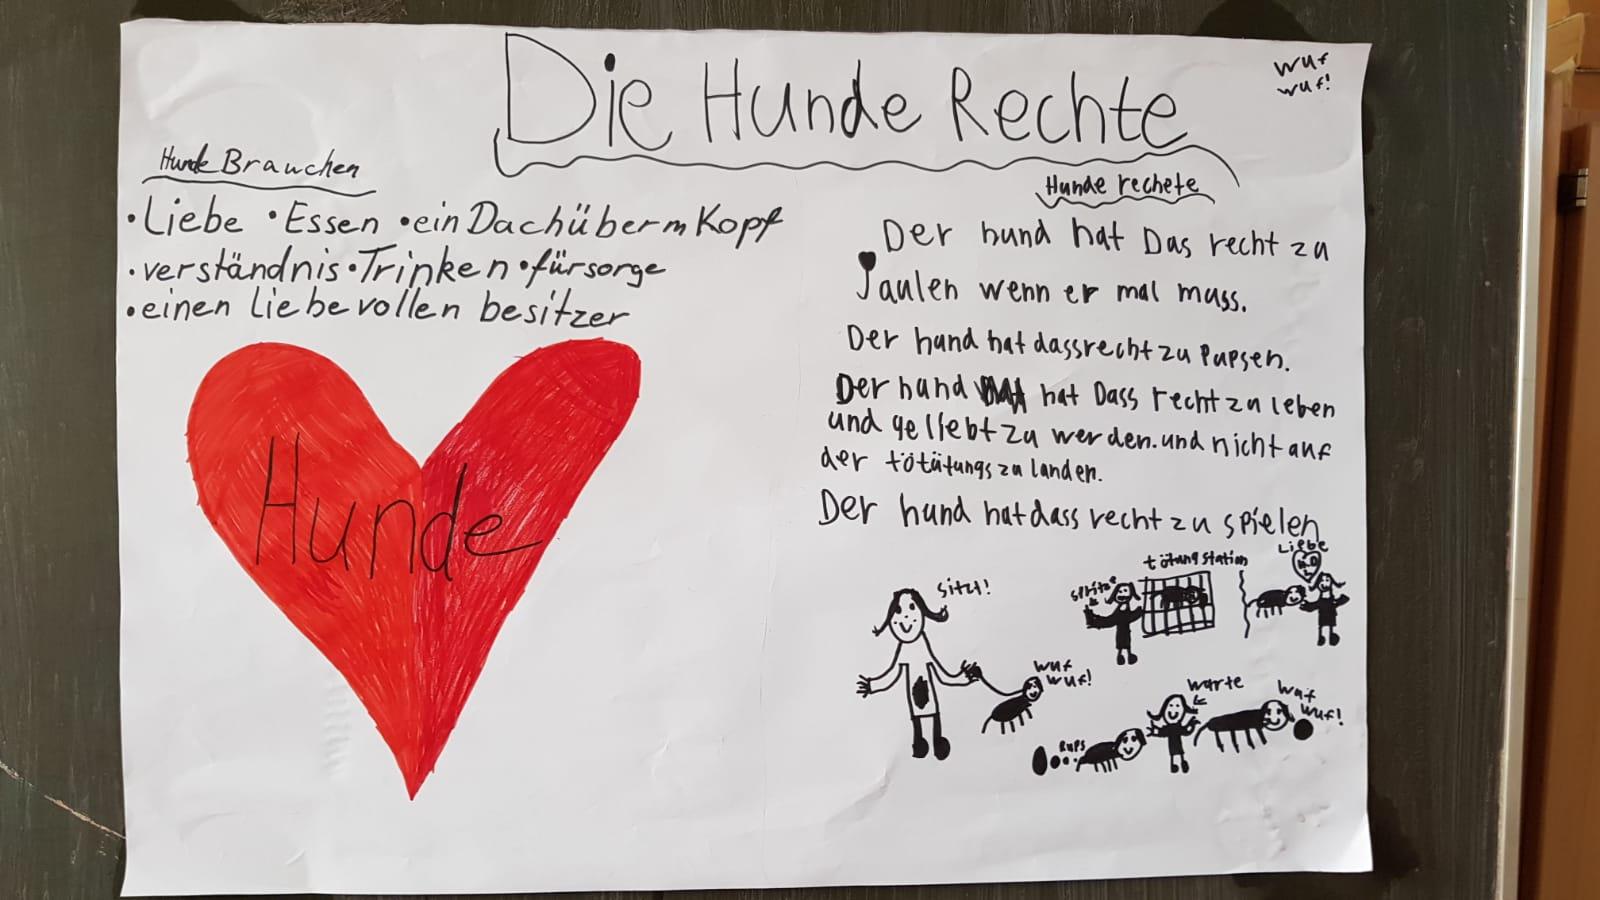 Die Hunde Rechte
wuf
wuf!
Hunde Brauchen
•Liebe •Essen •ein Dach überm Kopf
•verständnis •Trinken •fürsorge
•einen liebevollen besitzer
Hunde
Hunde rechete
Der hund hat Das recht zu
Jaulen wenn er mal muss.
Der hund hat dass recht zu Pupsen.
Der hund hat Dass recht zu leben
und geliebt zu werden. und nicht auf
der tötütungs zu landen.
Der hund hat dass recht zu spielen
sitz!
wuf
wuf!
spritze
tötungstation
Liebe
Pups
warte
wuf
wuf!